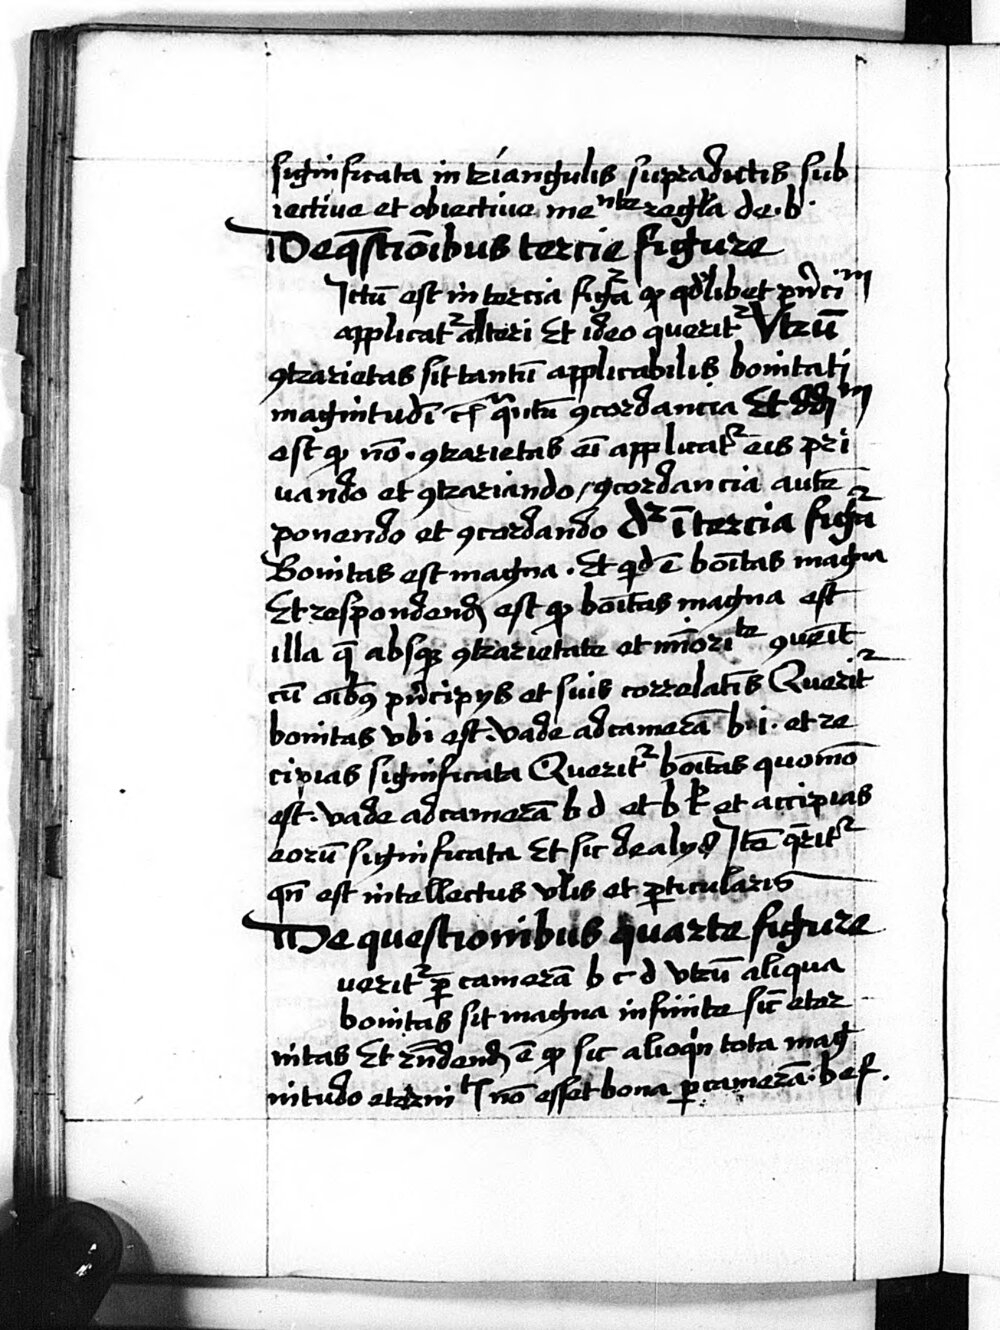 significata in triangulis supradictis sub
iective et obiective mente regła de .b.
De q̄stiōibus tercie figure
Ictū est in tercia figᵃ qꝫ qdlibet pⁿciᵐ
applicatʳ alteri Et ideo queritʳ Vtrū
ꝯtrarietas sit tantū applicabilis bonitati
magnitudī cͭ qᵃntū ꝯcordancia Et dd̄ᵐ
est qꝫ nō . ꝯtrarietas eī applicatʳ eis pri
uando et ꝯtrariando / ꝯcordancia autē
ponendo et ꝯcordando dʳ ī tercia figᵃ
Bonitas est magna . Et qͥd ē boītas magna
Et respondendꝫ est qꝫ boītas magna est
illa q̄ absqꝫ ꝯtrarietate et mīoriᵗᵉ ꝯuēit
cū oībꝯ pⁿcipijs et suis correlatīs Queritʳ
bonitas vbi est . vade ad camerā b . i . et re
cipias significata Queritʳ boītas quomō
est . vade ad camerā b d et b k et accipias
eorū significata Et sic de alijs Itē q̄ritʳ
qn̄ est intellectus vłis et ꝑticularis
De questionibus quarte figure
ueritʳ ꝑ camerā b c d vtrū aliqua
bonitas sit magna infinite sic̄ eter
nitas Et rn̄dendꝫ ē qꝫ sic alioqͥn tota mag
nitudo eterniᵗꝭ nō esset bona ꝑ camerā . b e f .